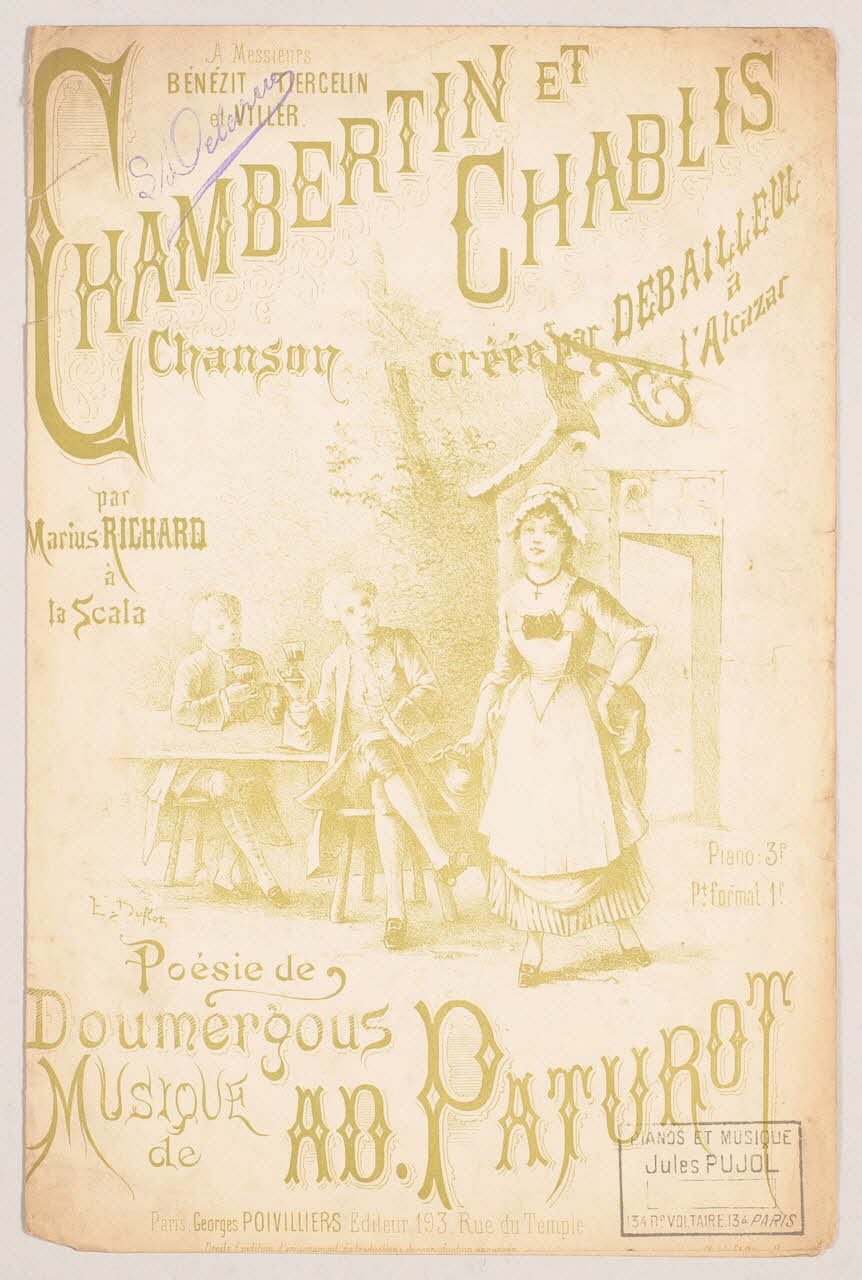 A Messieurs
BÉNÉZIT TERCELIN
et VYLLER.
CHAMBERTIN ET
CHABLIS
Chanson créée par DEBAILLEUL
à
l'Alcazar
par
Marius RICHARD
à
la Scala
Piano : 3f
Pt format 1f
E. Duflot
Poésie de
Doumergous
MUSIQUE
de
AD. PATUROT
PIANOS ET MUSIQUE
Jules PUJOL
134 Bd VOLTAIRE. 134 PARIS
Paris, Georges POIVILLIERS Editeur, 193, Rue du Temple